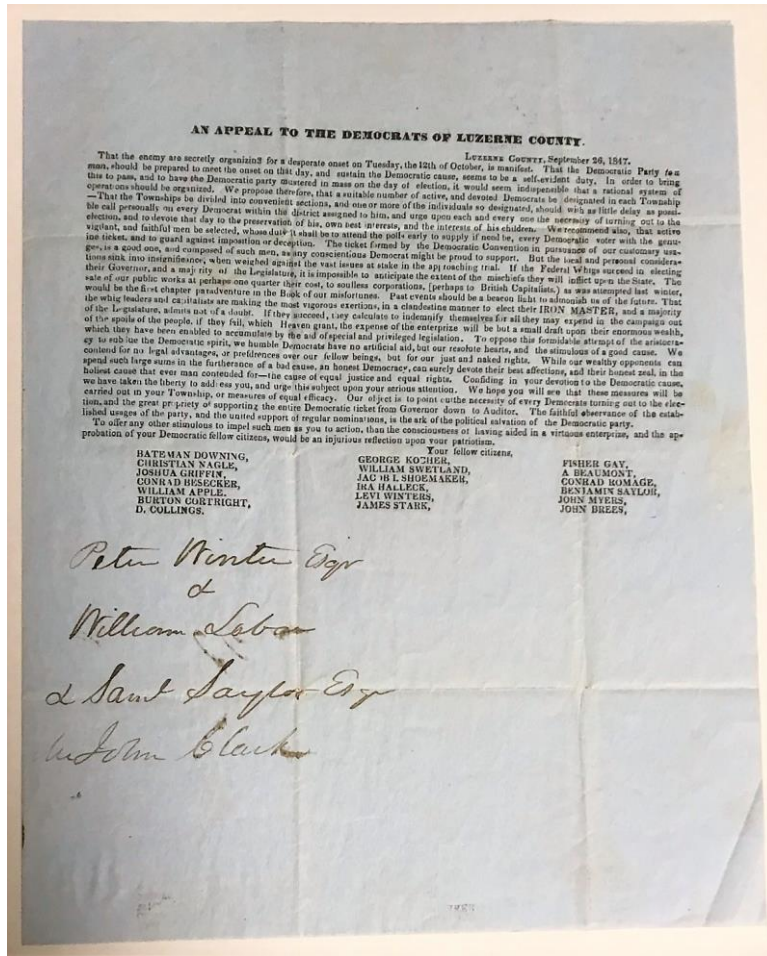 AN APPEAL TO THE DEMOCRATS OF LUZERNE COUNTY.
LUZERNE COUNTY, September 26, 1847.
That the enemy are secretly organizing for a desperate onset on Tuesday, the 12th of October, is manifest. That the Democratic Party to a
man, should be prepared to meet the onset on that day, and sustain the Democratic cause, seems to be a self-evident duty, In order to bring
this to pass, and to have the Democratic party mustered in mass on the day of election, it would seem indispensible that a rational system of
operations should be organized. We propose therefore, that a suitable number of active, and devoted Democrats be designated in each Township
—That the Townships be divided into convenient sections, and one or more of the individuals so designated, should with as little delay as possi-
ble call personally on every Democrat within the district assigned to him, and urge upon each and every one the necessity of turning out to the
election, and to devote that day to the preservation of his, own best interests, and the interests of his children. We recommend also, that active
vigilant, and faithful men be selected, whose duty it shall be to attend the polls early to supply if need be, every Democratic voter with the genu-
ine ticket, and to guard against imposition or deception. The ticket formed by the Democratic Convention in pursuance of our customary usa-
ges, is a good one, and composed of such men, as any conscientious Democrat might be proud to support. But the local and personal considera-
tions sink into insignificance, when weighed against the vast issues at stake in the approaching trial. If the Federal Whigs succeed in electing
their Governor, and a majority of the Legislature, it is impossible to anticipate the extent of the mischiefs they will inflict upon the State. The
sale of our public works at perhaps one quarter their cost, to soulless corporations, [perhaps to British Capitalists,) as was attempted last winter,
would be the first chapter paradventure in the Book of our misfortunes. Past events should be a beacon light to admonish us of the future. That
the whig leaders and capitalists are making the most vigorous exertions, in a clandestine manner to elect their IRON MASTER, and a majority
of the Legislature, admits not of a doubt. If they succeed, they calculate to indemnify themselves for all they may expend in the campaign out
of the spoils of the people, if they fail, which Heaven grant, the expense of the enterprize will be but a small draft upon their enormous wealth,
which they have been enabled to accumulate by the aid of special and privileged legislation. To oppose this formidable attempt of the aristocra-
cy to subdue the Democratic spirit, we humble Democrats have no artificial aid, but our resolute hearts, and the stimulous of a good cause. We
contend for no legal advantages, or prefdrences over our fellow beings, but for our just and naked rights. While our wealthy opponents can
spend such large sums in the furtherance of a bad cause, an honest Democracy, can surely devote their best affections, and their honest zeal, in the
holiest cause that ever man contended for—the cause of equal justice and equal rights. Confiding in your devotion to the Democratic cause,
we have taken the liberty to address you, and urge this subject upon your serious attention. We hope you will see that these measures will be
carried out in your Township, or measures of equal efficacy. Our object is to point out the necessity of every Democrats turning out to the elec-
tion, and the great propriety of supporting the entire Democratic ticket from Governor down to Auditor. The faithful observance of the estab-
lished usages of the party, and the united support of regular nominations, is the ark of the political salvation of the Democratic party.
To offer any other stimulous to impel such men as you to action, than the consciousness of having aided in a virtuous enterprize, and the ap-
probation of your Democratic fellow citizens, would be an injurious reflection upon your patriotism.
Your fellow citizens,
BATEMAN DOWNING,
CHRISTIAN NAGLE,
JOSHUA GRIFFIN,
CONRAD BESECKER,
WILLIAM APPLE.
BURTON CORTRIGHT,
D. COLLINGS.
GEORGE KOCHER,
WILLIAM SWETLAND,
JACOB I. SHOEMAKER,
IRA HALLECK,
LEVI WINTERS,
JAMES STARK,
FISHER GAY,
A BEAUMONT,
CONRAD ROMAGE,
BENJAMIN SAYLOR,
JOHN MYERS,
JOHN BREES,
Peter Winter Esqr
&
William Labar
& Saml Saylor Esqr
John Clark